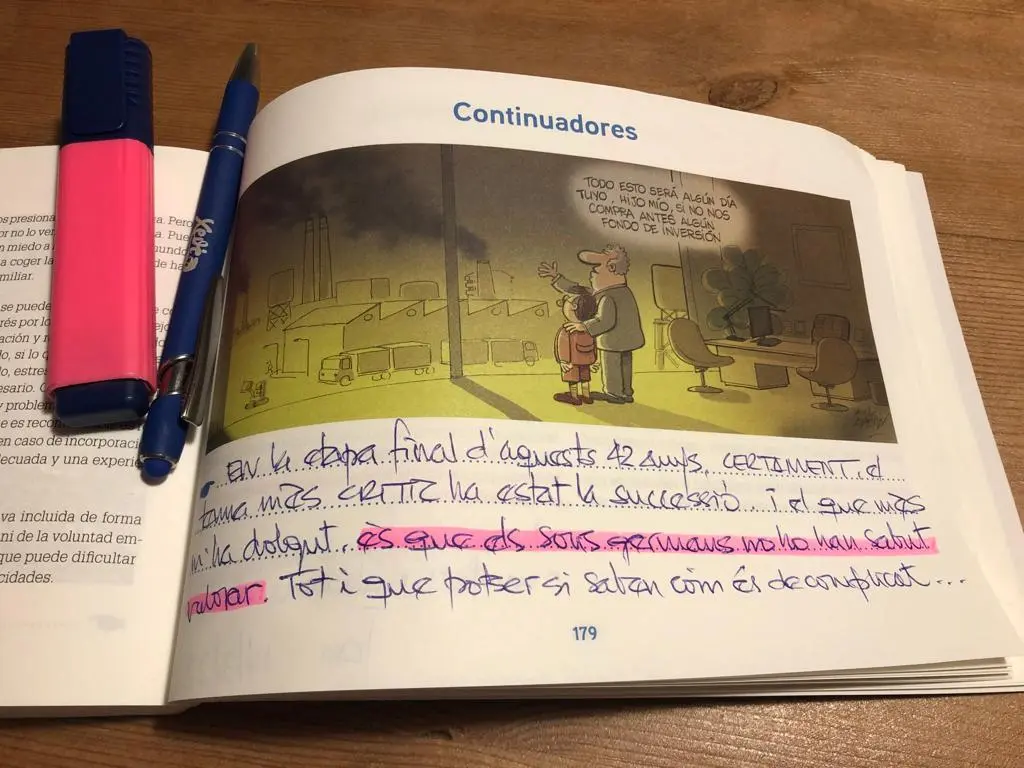 Continuadores
TODO ESTO SERÁ ALGÚN DÍA
TUYO, HIJO MÍO, SI NO NOS
COMPRA ANTES ALGÚN
FONDO DE INVERSIÓN
EN la etapa final d'aquests 42 anys, CERTAMENT, el
tema més CRÍTIC ha estat la successió i el que més
m'ha dolgut, és que els seus germans no ho han sabut
valorar. Tot i que potser si saben com és de complicat...
179
os presiona
a. Pero
or no lo ve
Pue
n miedo a
mundo
a coger la
de ha
miliar.
se puede
rés por lo
ación y r
lo, si lo
lo, estres
esario.
y problem
ue es recon
en caso de incorporaci
lecuada y una experie
va incluida de forma
ni de la voluntad em-
que puede dificultar
cidades.